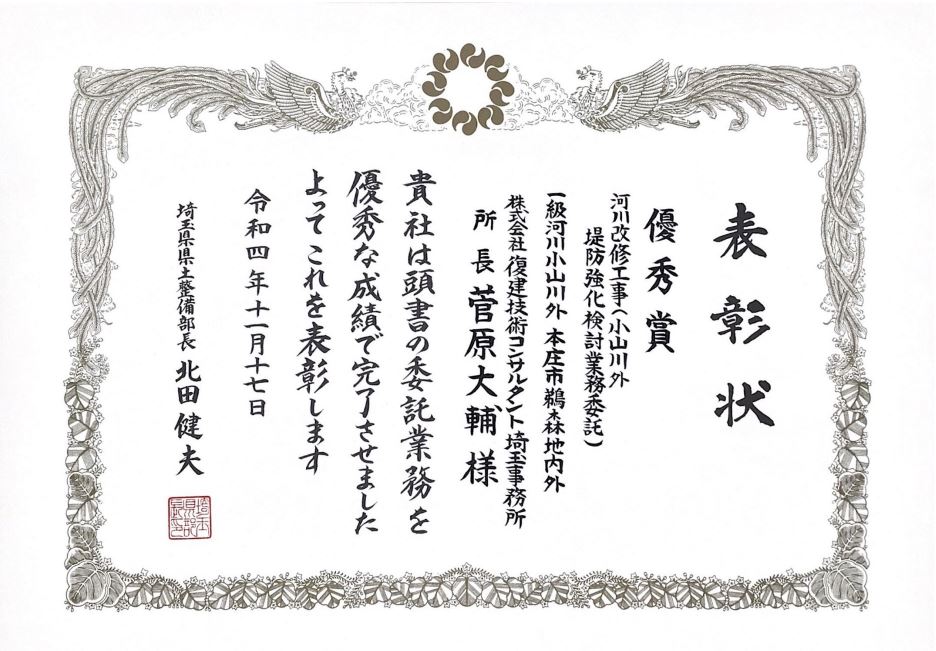 表彰状
優秀賞
河川改修工事(小山川外
堤防強化検討業務委託)
一級河川小山川外 本庄市鵜森地内外
株式会社復建技術コンサルタント埼玉事務所
所長 菅原大輔 様
貴社は頭書の委託業務を
優秀な成績で完了させました
よってこれを表彰します
令和四年十一月十七日
埼玉県県土整備部長 北田健夫